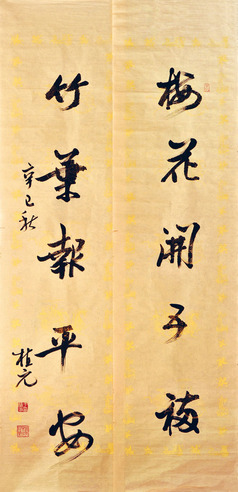 梅花開五福
竹葉報平安
辛巳秋
桂元